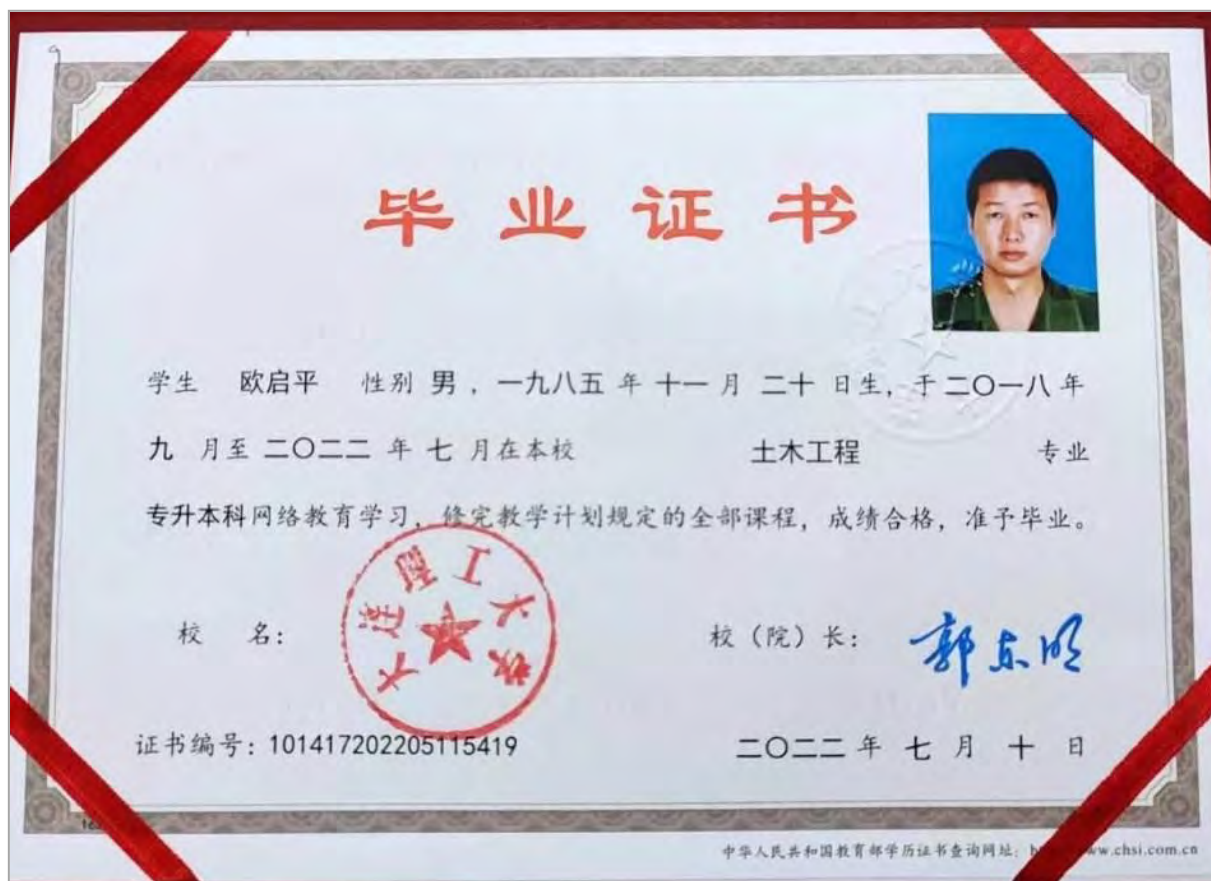 毕业证书
学生 欧启平 性别 男，一九八五 年 十一 月 二十 日生，于 二〇一八 年
九 月至 二〇二二 年 七 月在本校 土木工程 专业
专升本科 网络教育学习，修完教学计划规定的全部课程，成绩合格，准予毕业。
大连理工大学
校 名：
校（院）长： 郭东明
证书编号：101417202205115419
二〇二二 年 七 月 十 日
中华人民共和国教育部学历证书查询网址： www.chsi.com.cn